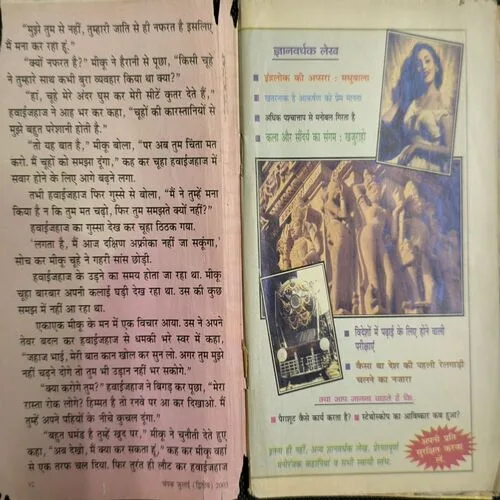 "मुझे तुम से नहीं, तुम्हारी जाति से ही नफरत है इसलिए
मैं मना कर रहा हूं."
"क्यों नफरत है?" मीकू ने हैरानी से पूछा, "किसी चूहे
ने तुम्हारे साथ कभी बुरा व्यवहार किया था क्या?"
"हां, चूहे मेरे अंदर घुस कर मेरी सीटें कुतर देते हैं,"
हवाईजहाज ने आह भर कर कहा, "चूहों की कारस्तानियों से
मुझे बहुत परेशानी होती है."
"तो यह बात है," मीकू बोला, "पर अब तुम चिंता मत
करो. मैं चूहों को समझा दूंगा," कह कर चूहा हवाईजहाज में
सवार होने के लिए आगे बढ़ने लगा.
तभी हवाईजहाज फिर गुस्से से बोला, "मैं ने तुम्हें मना
किया है न कि तुम मत चढ़ो, फिर तुम समझते क्यों नहीं?"
हवाईजहाज का गुस्सा देख कर चूहा ठिठक गया.
'लगता है, मैं आज दक्षिण अफ्रीका नहीं जा सकूंगा,'
सोच कर मीकू चूहे ने गहरी सांस छोड़ी.
हवाईजहाज के उड़ने का समय होता जा रहा था. मीकू
चूहा बारबार अपनी कलाई घड़ी देख रहा था. उस की कुछ
समझ में नहीं आ रहा था.
एकाएक मीकू के मन में एक विचार आया. उस ने अपने
तेवर बदल कर हवाईजहाज से धमकी भरे स्वर में कहा,
"जहाज भाई, मेरी बात कान खोल कर सुन लो. अगर तुम मुझे
नहीं चढ़ने दोगे तो तुम भी उड़ान नहीं भर सकोगे."
"क्या करोगे तुम?" हवाईजहाज ने बिगड़ कर पूछा, "मेरा
रास्ता रोक लोगे? हिम्मत है तो रनवे पर आ कर दिखाओ. मैं
तुम्हें अपने पहियों के नीचे कुचल दूंगा."
"बहुत घमंड है तुम्हें खुद पर," मीकू ने चुनौती देते हुए
कहा, "अब देखो, मैं क्या कर सकता हूं," कह कर मीकू वहां
से एक तरफ चल दिया. फिर तुरंत ही लौट कर हवाईजहाज
चंपक जुलाई (द्वितीय) 2003
ज्ञानवर्धक लेख
इंद्रलोक की अप्सरा : मधुबाला
खतरनाक है आकर्षण को प्रेम मानना
अधिक पश्चात्ताप से मनोबल गिरता है
कला और सौंदर्य का संगम : खजुराहो
विदेशों में पढ़ाई के लिए होने वाली
परीक्षाएं
कैसा था देश की पहली रेलगाड़ी
चलने का नजारा
क्या आप जानना चाहते हैं कि
पैराशूट कैसे कार्य करता है?
स्टेथोस्कोप का आविष्कार कब हुआ?
इतना ही नहीं, अन्य ज्ञानवर्धक लेख, प्रेरणापूर्ण
मनोरंजक कहानियां व सभी स्थायी स्तंभ.
अपनी प्रति
सुरक्षित करवा
लें.